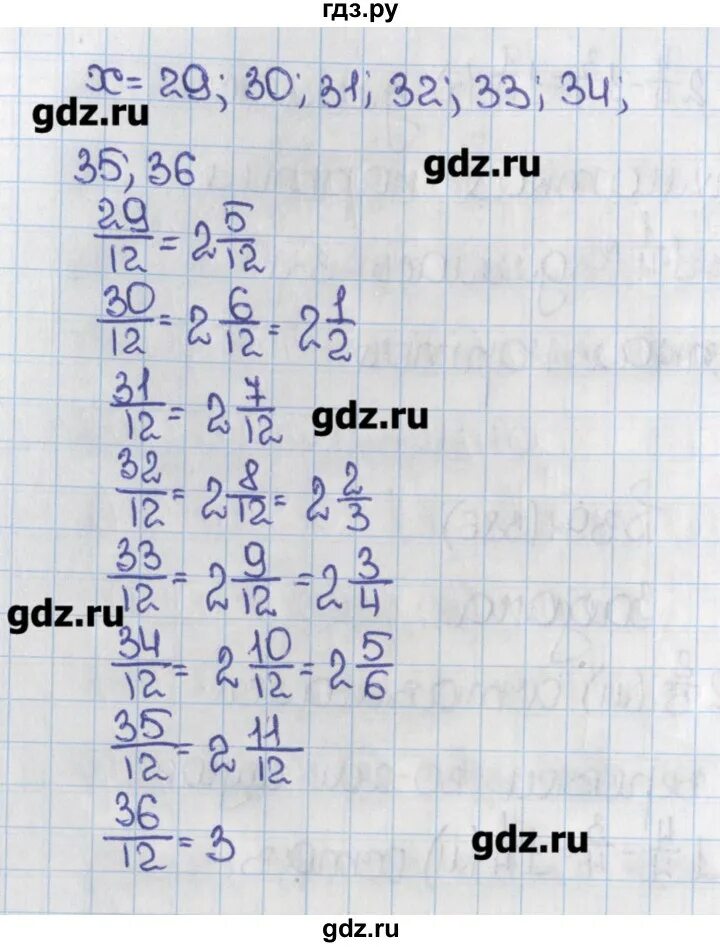 гдз.ру
x = 29; 30; 31; 32; 33; 34;
gdz.ru
35, 36
gdz.ru
29/12 = 2 5/12
30/12 = 2 6/12 = 2 1/2
31/12 = 2 7/12
gdz.ru
32/12 = 2 8/12 = 2 2/3
33/12 = 2 9/12 = 2 3/4
gdz.ru
34/12 = 2 10/12 = 2 5/6
35/12 = 2 11/12
36/12 = 3
gdz.ru
gdz.ru